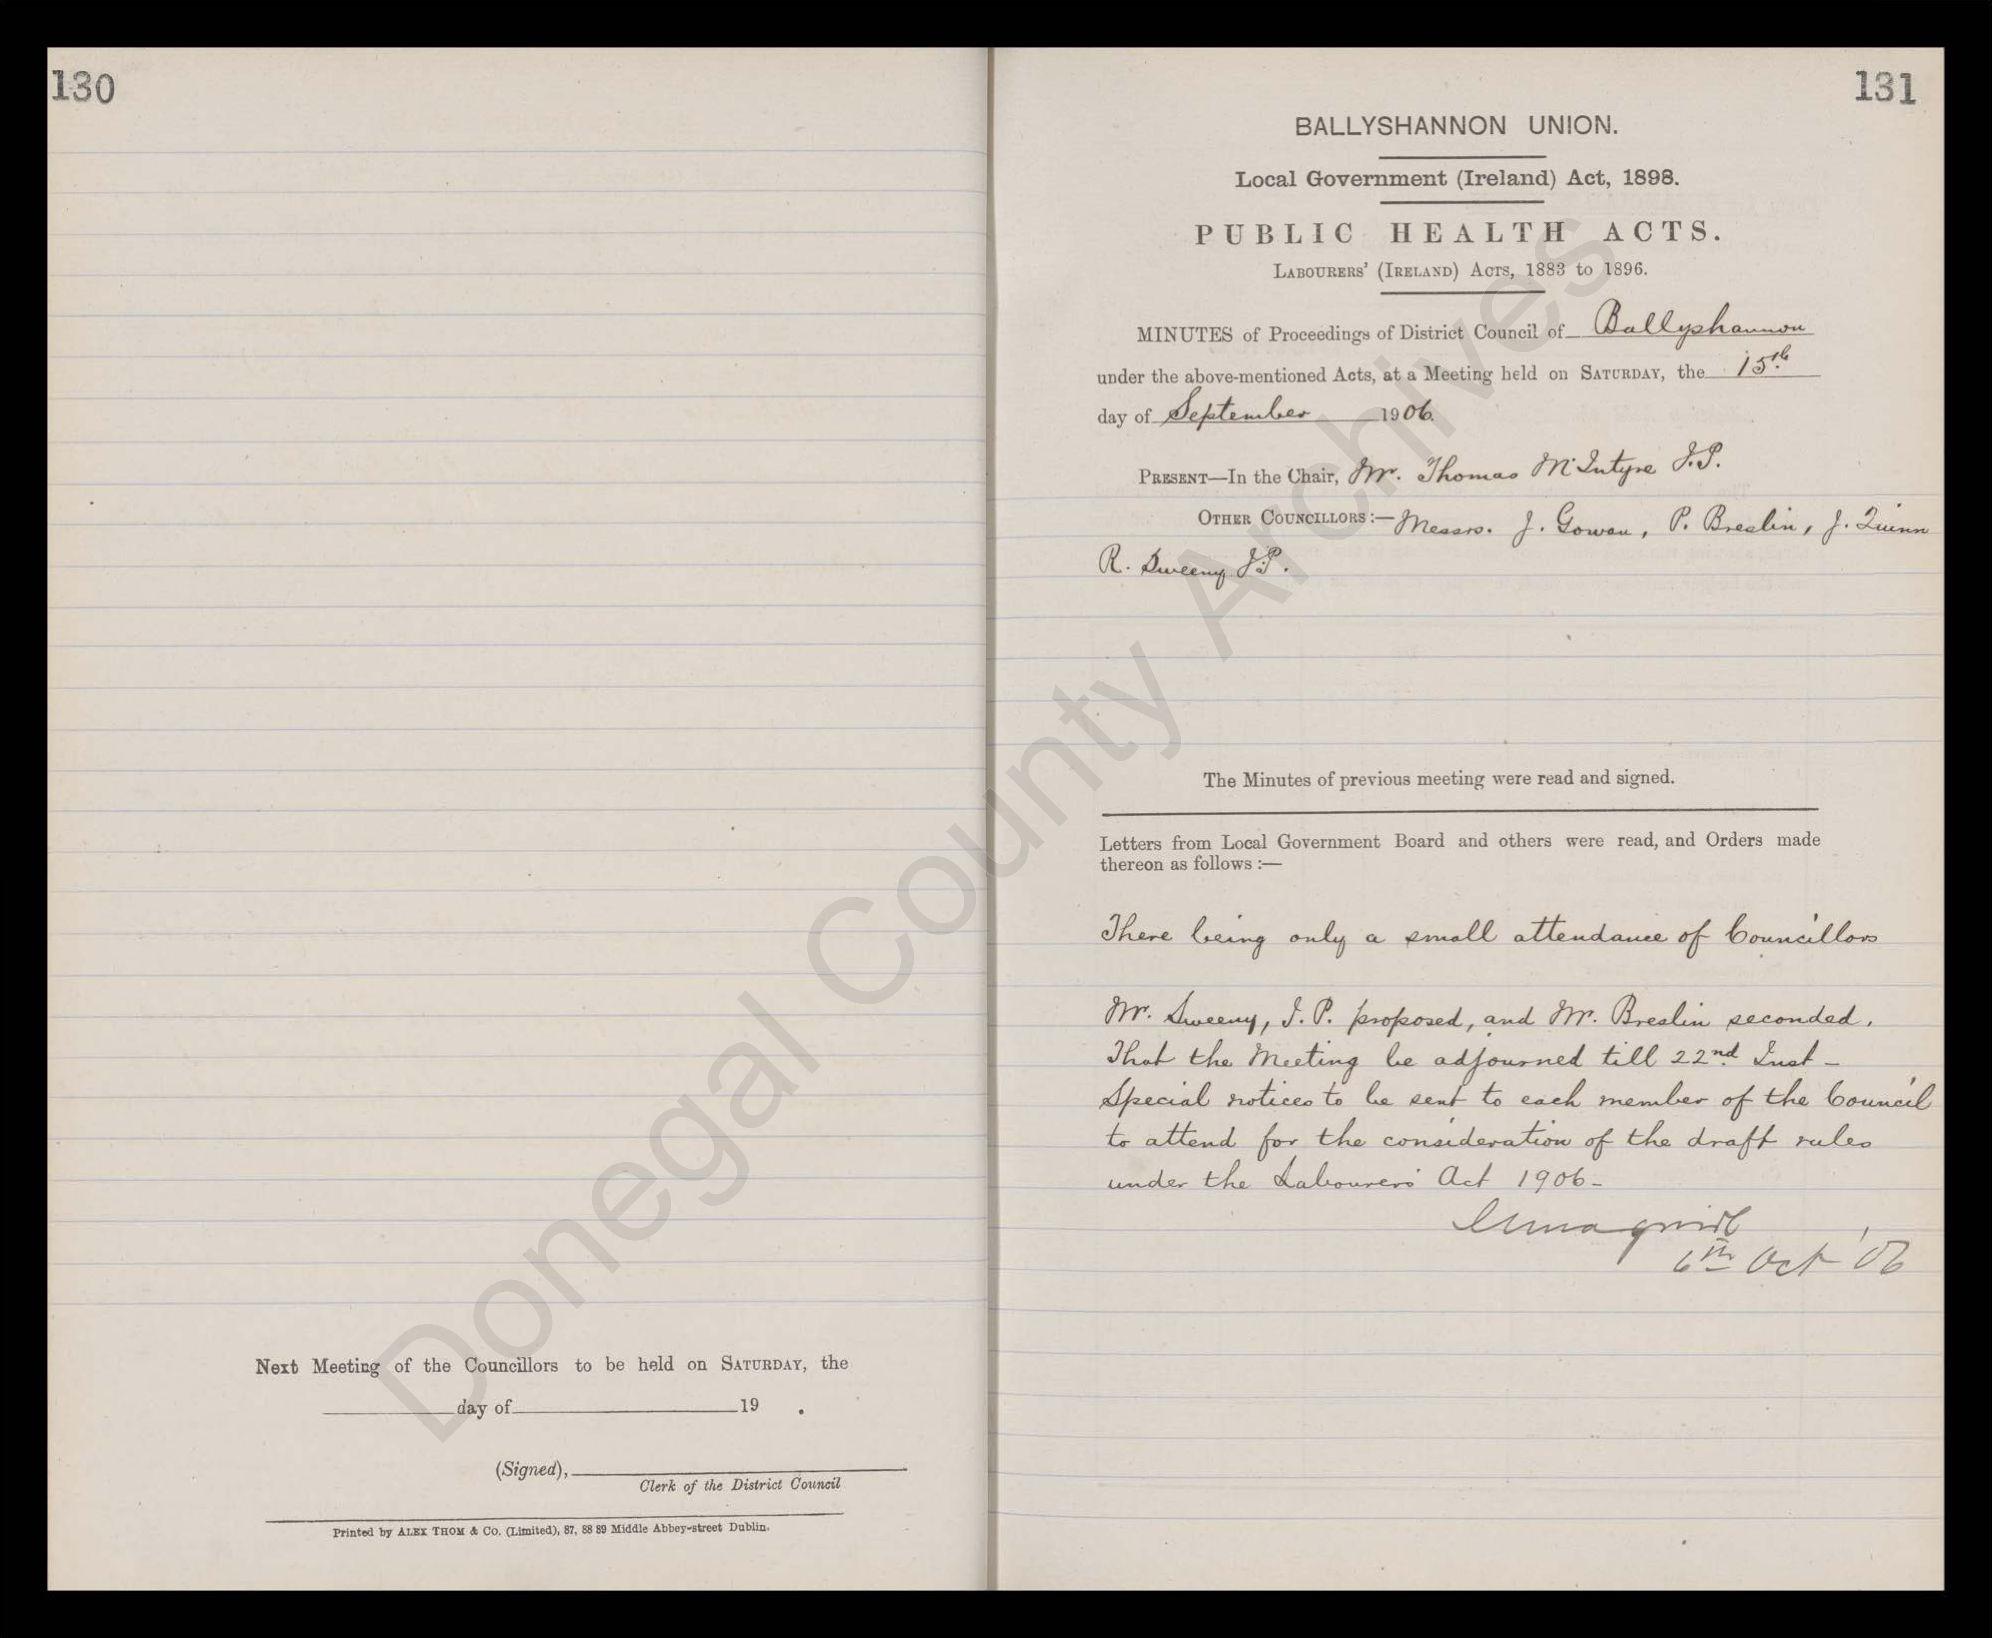 130
Next Meeting of the Councillors to be held on SATURDAY, the
day of 19 .
(Signed),
Clerk of the District Council
Printed by ALEX THOM & CO. (Limited), 87, 88 89 Middle Abbey-street Dublin.
131
BALLYSHANNON UNION.
Local Government (Ireland) Act, 1898.
PUBLIC HEALTH ACTS.
LABOURERS' (IRELAND) ACTS, 1883 to 1896.
MINUTES of Proceedings of District Council of Ballyshannon
under the above-mentioned Acts, at a Meeting held on SATURDAY, the 15th
day of September 1906.
PRESENT—In the Chair, Mr. Thomas McIntyre J.P.
OTHER COUNCILLORS:— Messrs. J. Gowan, P. Breslin, J. Quinn
R. Sweeny J.P.
The Minutes of previous meeting were read and signed.
Letters from Local Government Board and others were read, and Orders made
thereon as follows :—
There being only a small attendance of Councillors
Mr. Sweeny, J.P. proposed, and Mr. Breslin seconded.
That the Meeting be adjourned till 22nd Inst -
Special notices to be sent to each member of the Council
to attend for the consideration of the draft rules
under the Labourers' Act 1906 -
6th Oct '06
Donegal County Archives